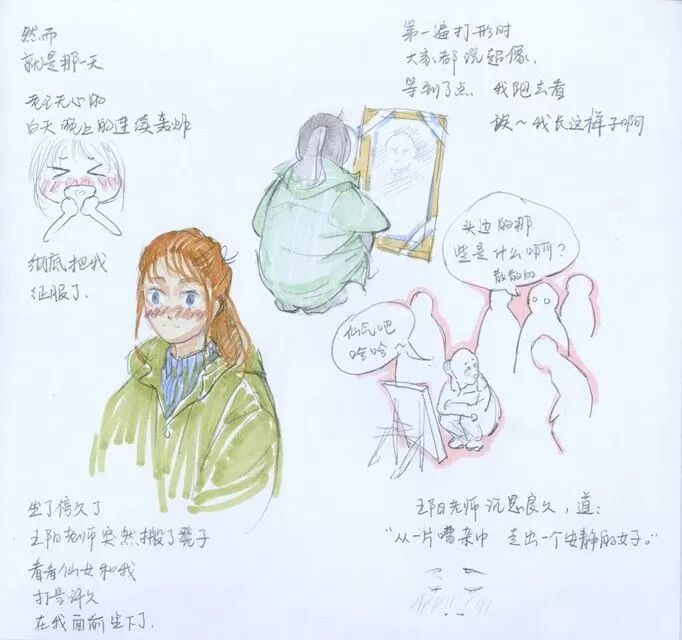 然而
就是那一天
无心的
白天晚上的连续轰炸
彻底把我
征服了.
第一遍打形时
大家都说超像.
等到了点 我跑去看
诶~我长这样子啊
头边的那
些是什么啊?
散散的
仙气吧
哈哈~
坐了停久了
王阳老师突然搬了凳子
看看仙女和我
打量许久
在我面前坐下了.
王阳老师沉思良久，道：
“从一片嘈杂中 走出一个安静的女子。”